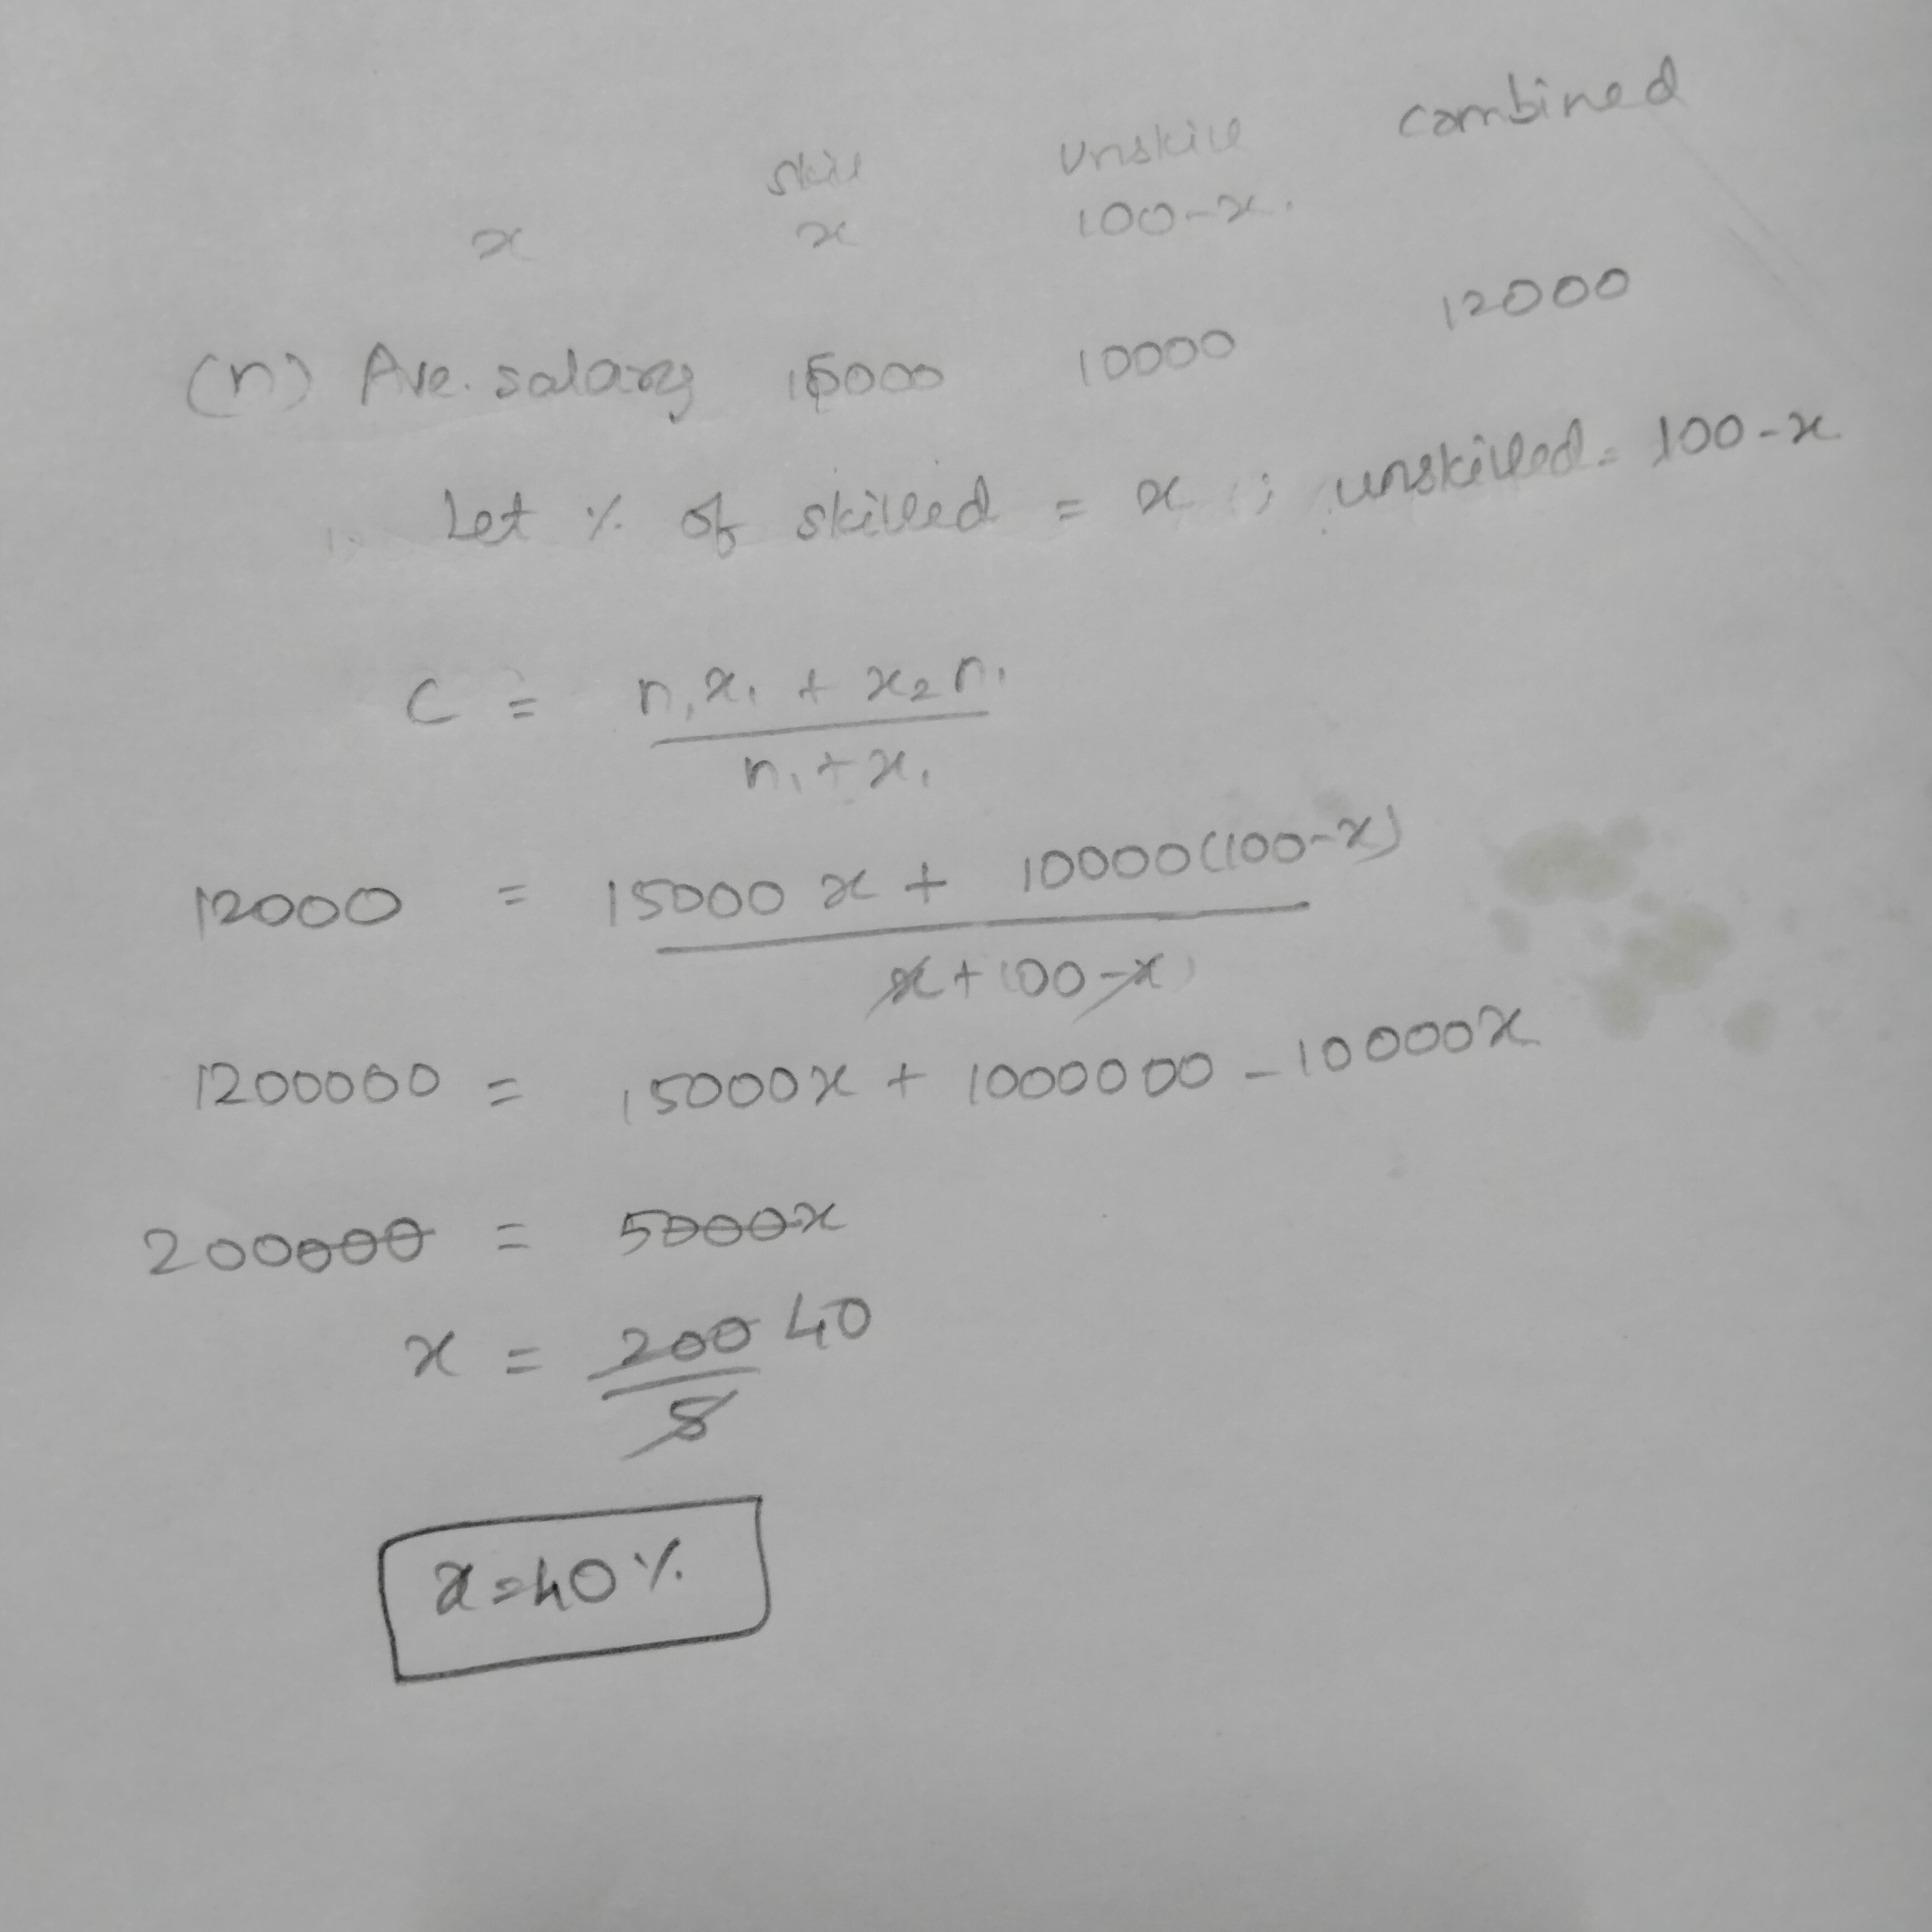 skill unskill combined
x x 100-x.
(n) Ave. salary 15000 10000 12000
Let % of skilled = x ; unskilled = 100-x
C = n₁x₁ + x₂n₁ / n₁+x₁
12000 = 15000x + 10000(100-x) / x+100-x
1200000 = 15000x + 1000000 - 10000x
200000 = 5000x
x = 200/5 40
x=40%